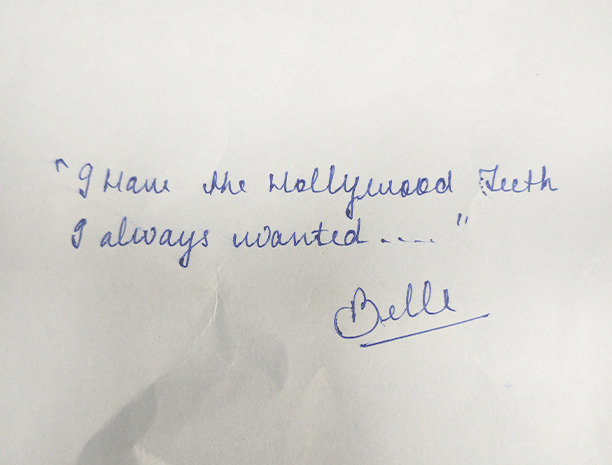 "I Have the Hollywood Teeth
I always wanted...."
Belle